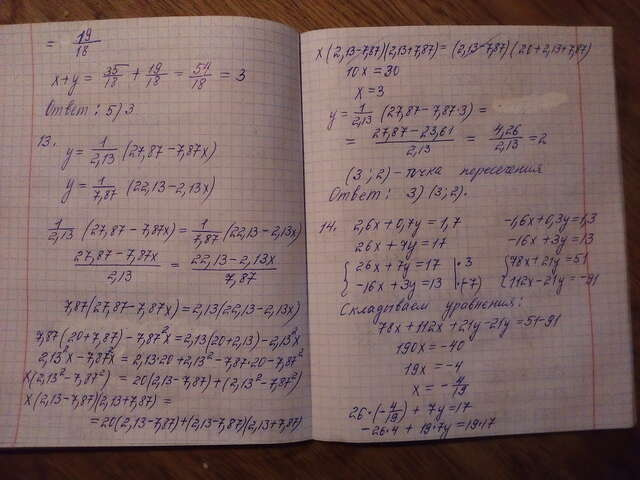 = 19/18
x+y = 35/18 + 19/18 = 54/18 = 3
Ответ: 5) 3
13. y = 1/2,13 (27,87 - 7,87x)
y = 1/7,87 (22,13 - 2,13x)
1/2,13 (27,87 - 7,87x) = 1/7,87 (22,13 - 2,13x)
27,87 - 7,87x/2,13 = 22,13 - 2,13x/7,87
7,87(27,87 - 7,87x) = 2,13(22,13 - 2,13x)
7,87(20+7,87) - 7,87²x = 2,13(20+2,13) - 2,13²x
2,13²x - 7,87²x = 2,13·20 + 2,13² - 7,87·20 - 7,87²
x(2,13² - 7,87²) = 20(2,13 - 7,87) + (2,13² - 7,87²)
x(2,13 - 7,87)(2,13 + 7,87) =
= 20(2,13 - 7,87) + (2,13 - 7,87)(2,13 + 7,87)
x(2,13 - 7,87)(2,13 + 7,87) = (2,13 - 7,87)(20 + 2,13 + 7,87)
10x = 30
x = 3
y = 1/2,13 (27,87 - 7,87·3) =
= 27,87 - 23,61/2,13 = 4,26/2,13 = 2
(3; 2) - точка пересечения
Ответ: 3) (3; 2).
14. 2,6x + 0,7y = 1,7 -1,6x + 0,3y = 1,3
26x + 7y = 17 -16x + 3y = 13
{ 26x + 7y = 17 | ·3 { 78x + 21y = 51
-16x + 3y = 13 | ·(-7) 112x - 21y = -91
Складываем уравнения:
78x + 112x + 21y - 21y = 51 - 91
190x = -40
19x = -4
x = -4/19
26·(-4/19) + 7y = 17
-26·4 + 19·7y = 19·17